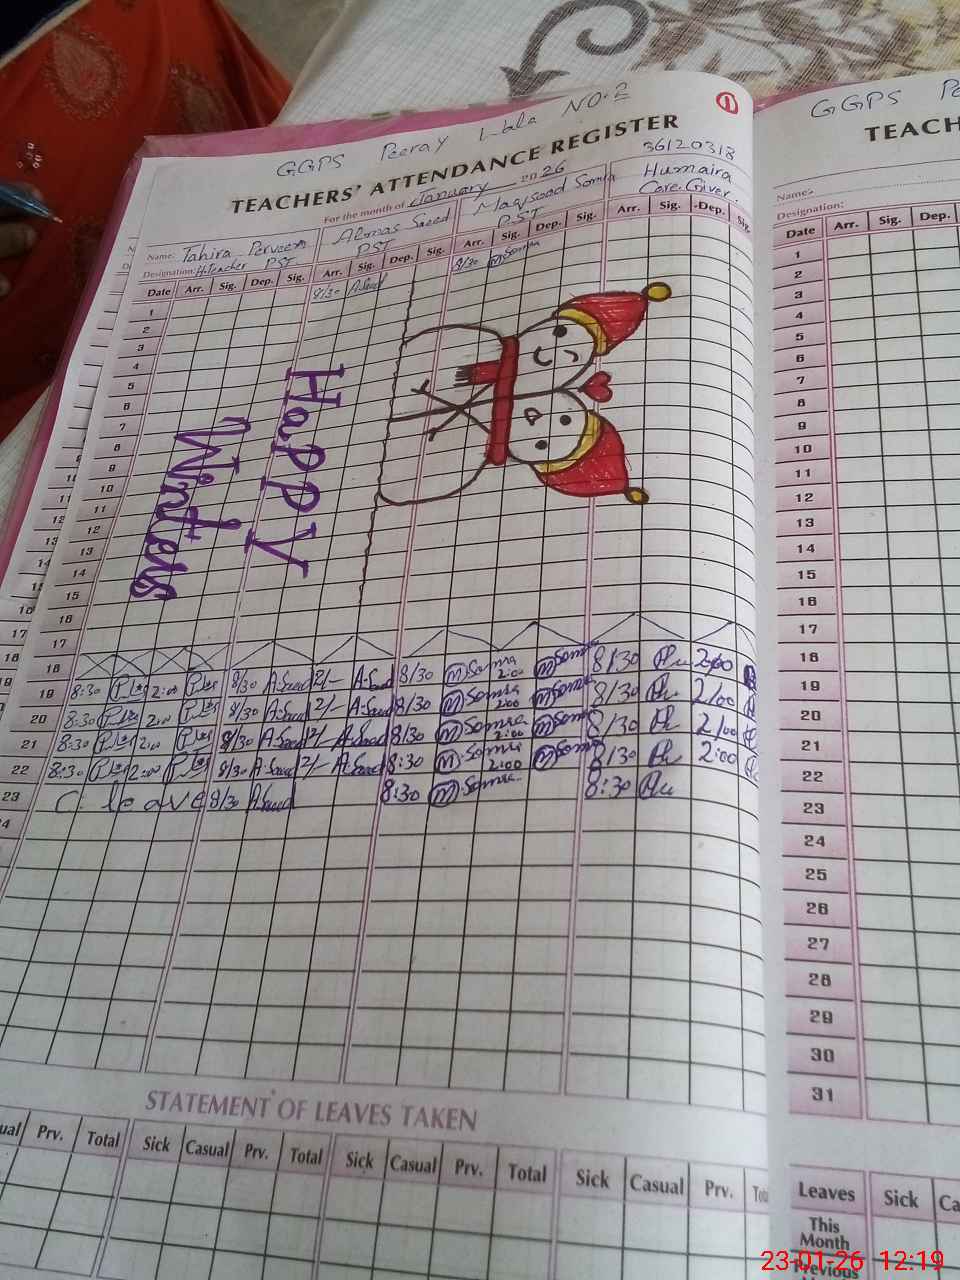 GGPS Peeray Wala NO.2
1
TEACHERS' ATTENDANCE REGISTER
36120318
For the month of January 2026
Name: Tahira Perveen Almas Saeed Maqsooda Somra Humaira
Designation: H.Teacher PST PST PST Care Giver
Date Arr. Sig. Dep. Sig. Arr. Sig. Dep. Sig. Arr. Sig. Dep. Sig. Arr. Sig. Dep. Sig.
1 8/30 A.Saeed 8/30 M Somra
2
3
4
5
6
7
8
9
10
11
12
13
14
15
16
17
18
HaPPy
Winters
19 8:30 2:00 8/30 A.Saeed 2/- A.Saeed 8/30 M Somra 2:00 M Somra 8/30 Hu 2:00
20 8:30 2:00 8/30 A.Saeed 2/- A.Saeed 8/30 M Somra 2:00 M Somra 8/30 Hu 2/00
21 8:30 2:00 8/30 A.Saeed 2/- A.Saeed 8/30 M Somra 2:00 M Somra 8/30 Hu 2/00
22 8:30 2:00 8/30 A.Saeed 2/- A.Saeed 8:30 M Somra 2:00 M Somra 8/30 Hu 2:00
23 C. leave 8/30 A.Saeed 8:30 M Somra 8:30 Hu
24
STATEMENT OF LEAVES TAKEN
Prv. Total Sick Casual Prv. Total Sick Casual Prv. Total Sick Casual Prv.
GGPS
TEACH
Name:-
Designation:
Date Arr. Sig. Dep.
1
2
3
4
5
6
7
8
9
10
11
12
13
14
15
16
17
18
19
20
21
22
23
24
25
26
27
28
29
30
31
Leaves Sick
This
Month
Previous
23-01-26 12:19